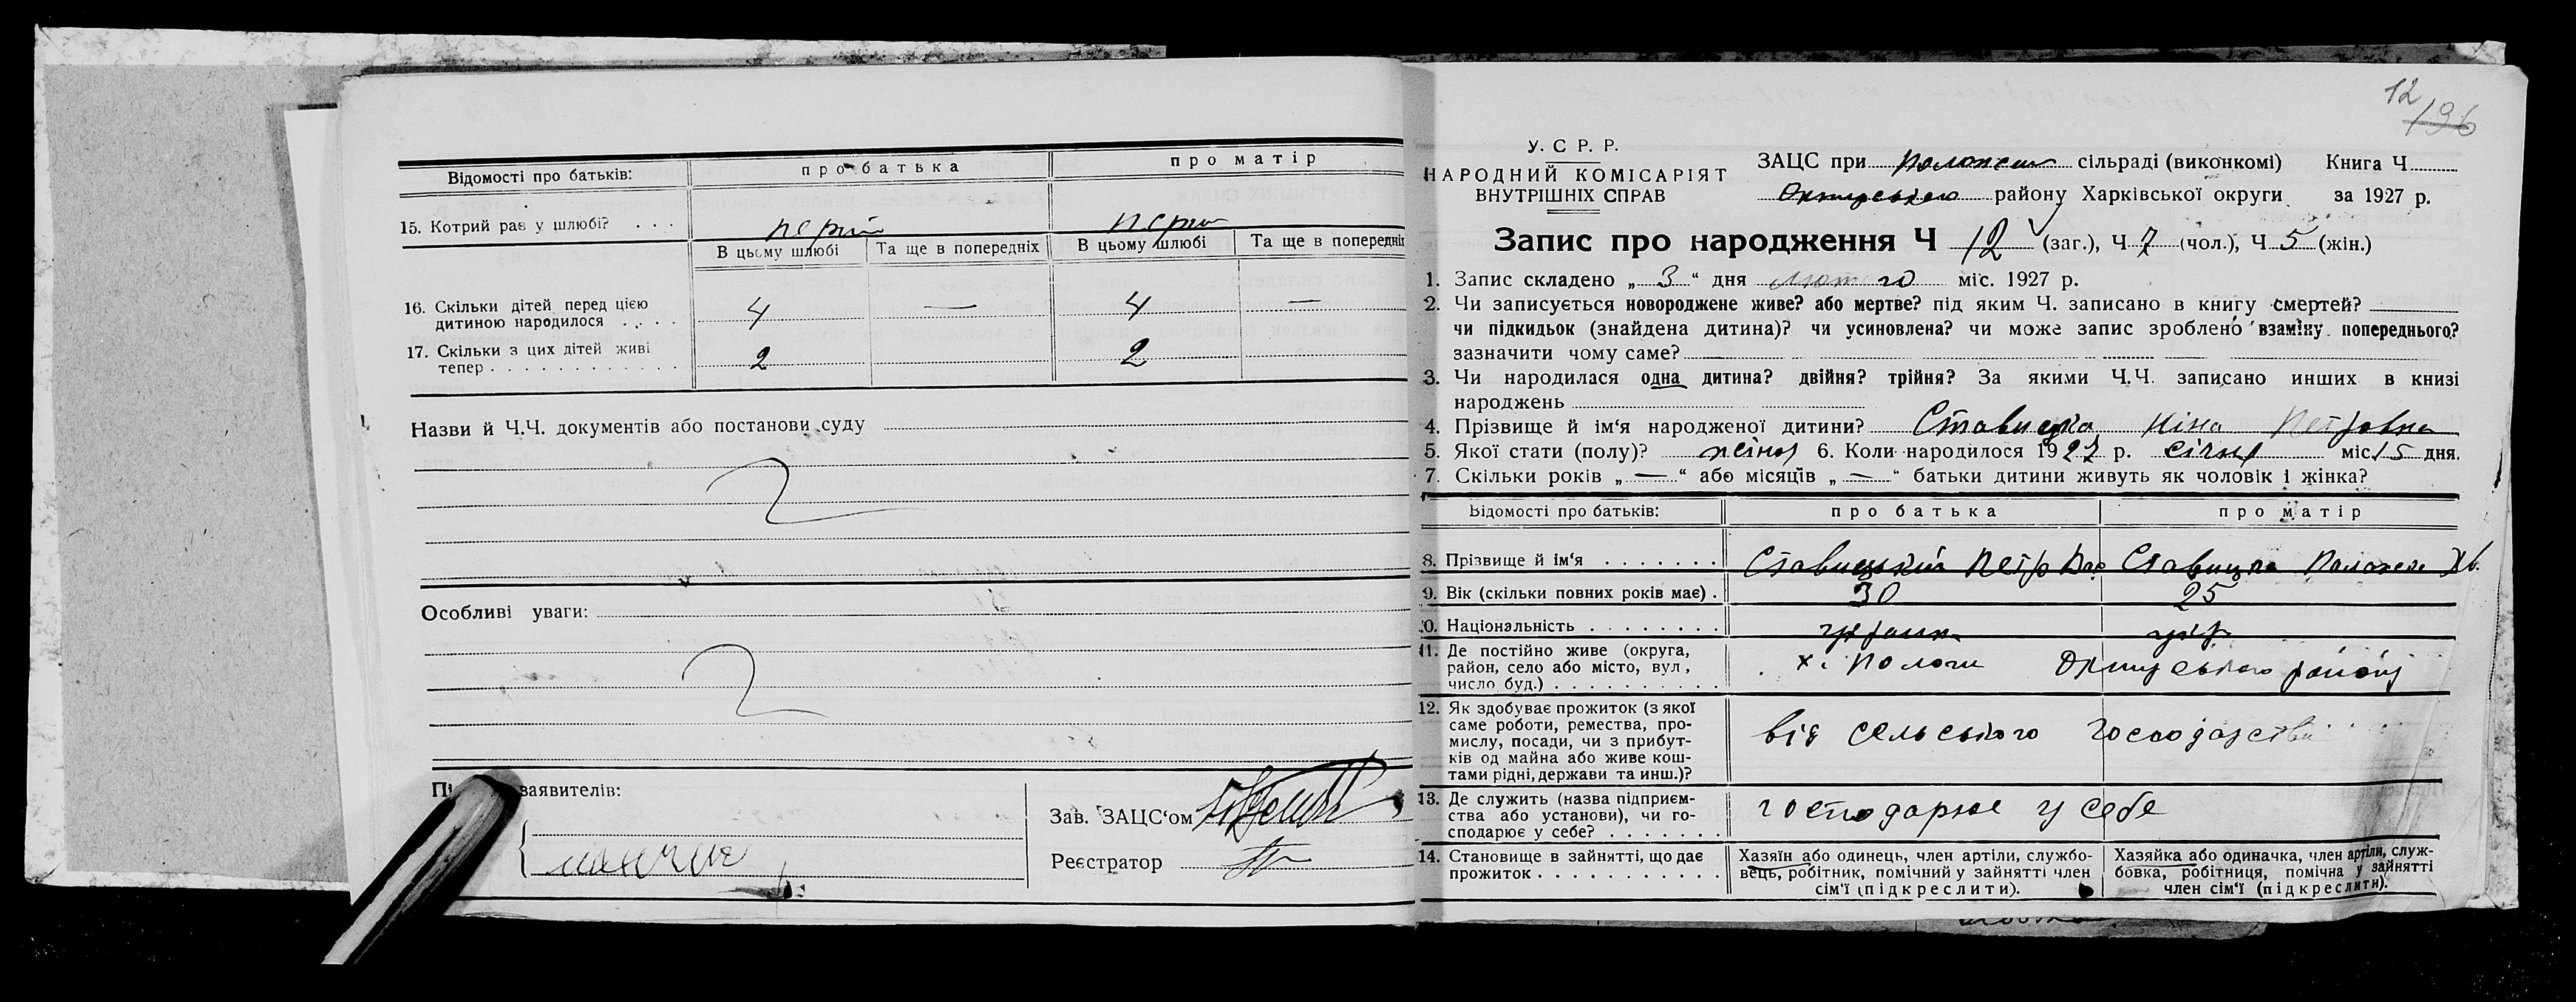 Відомості про батьків:
про батька
про матір
15. Котрий раз у шлюбі? . . .
В цьому шлюбі
Та ще в попередніх
В цьому шлюбі
Та ще в попередніх
16. Скільки дітей перед цією
дитиною народилося . . . .
4 — 4 —
17. Скільки з цих дітей живі
тепер . . . . . . . . . . . .
2 2
Назви й Ч.Ч. документів або постанови суду
Особливі уваги:
заявителів:
Зав. ЗАЦС‘ом
Реєстратор
12
196
У. С Р. Р.
НАРОДНИЙ КОМІСАРІЯТ
ВНУТРІШНІХ СПРАВ
ЗАЦС при сільраді (виконкомі) Книга Ч
району Харківської округи за 1927 р.
Запис про народження Ч 12 (заг.), Ч 7 (чол.), Ч 5 (жін.)
1. Запис складено „ 3 “ дня лютого міс. 1927 р.
2. Чи записується новороджене живе? або мертве? під яким Ч. записано в книгу смертей?
чи підкидьок (знайдена дитина)? чи усиновлена? чи може запис зроблено взаміну попереднього?
зазначити чому саме?
3. Чи народилася одна дитина? двійня? трійня? За якими Ч.Ч. записано инших в книзі
народжень
4. Прізвище й ім‘я народженої дитини? Ставицка Ніна Петровна
5. Якої стати (полу)? жіноч 6. Коли народилося 1927 р. січня міс. 15 дня.
7. Скільки років „ — “ або місяців „ — “ батьки дитини живуть як чоловік і жінка?
Відомості про батьків:
про батька
про матір
8. Прізвище й ім‘я . . . . . . .
Ставицький Петр
Ставицка
9. Вік (скільки повних років має) .
30
25
10. Національність . . . . . . . .
укр
11. Де постійно живе (округа,
район, село або місто, вул,
число буд.) . . . . . . . . . .
х. Пологи району
12. Як здобуває прожиток (з якої
саме роботи, ремества, про-
мислу, посади, чи з прибут-
ків од майна або живе кош-
тами рідні, держави та инш.)?
від сельського господарства
13. Де служить (назва підприєм-
ства або установи), чи го-
сподарює у себе? . . . . . . .
господарює у себе
14. Становище в зайнятті, що дає
прожиток . . . . . . . . . . .
Хазяїн або одинець, член артіли, службо-
вець, робітник, помічний у зайнятті член
сім‘ї (підкреслити).
Хазяйка або одиначка, член артіли, служ-
бовка, робітниця, помічна у зайнятті
член сім‘ї (підкреслити).